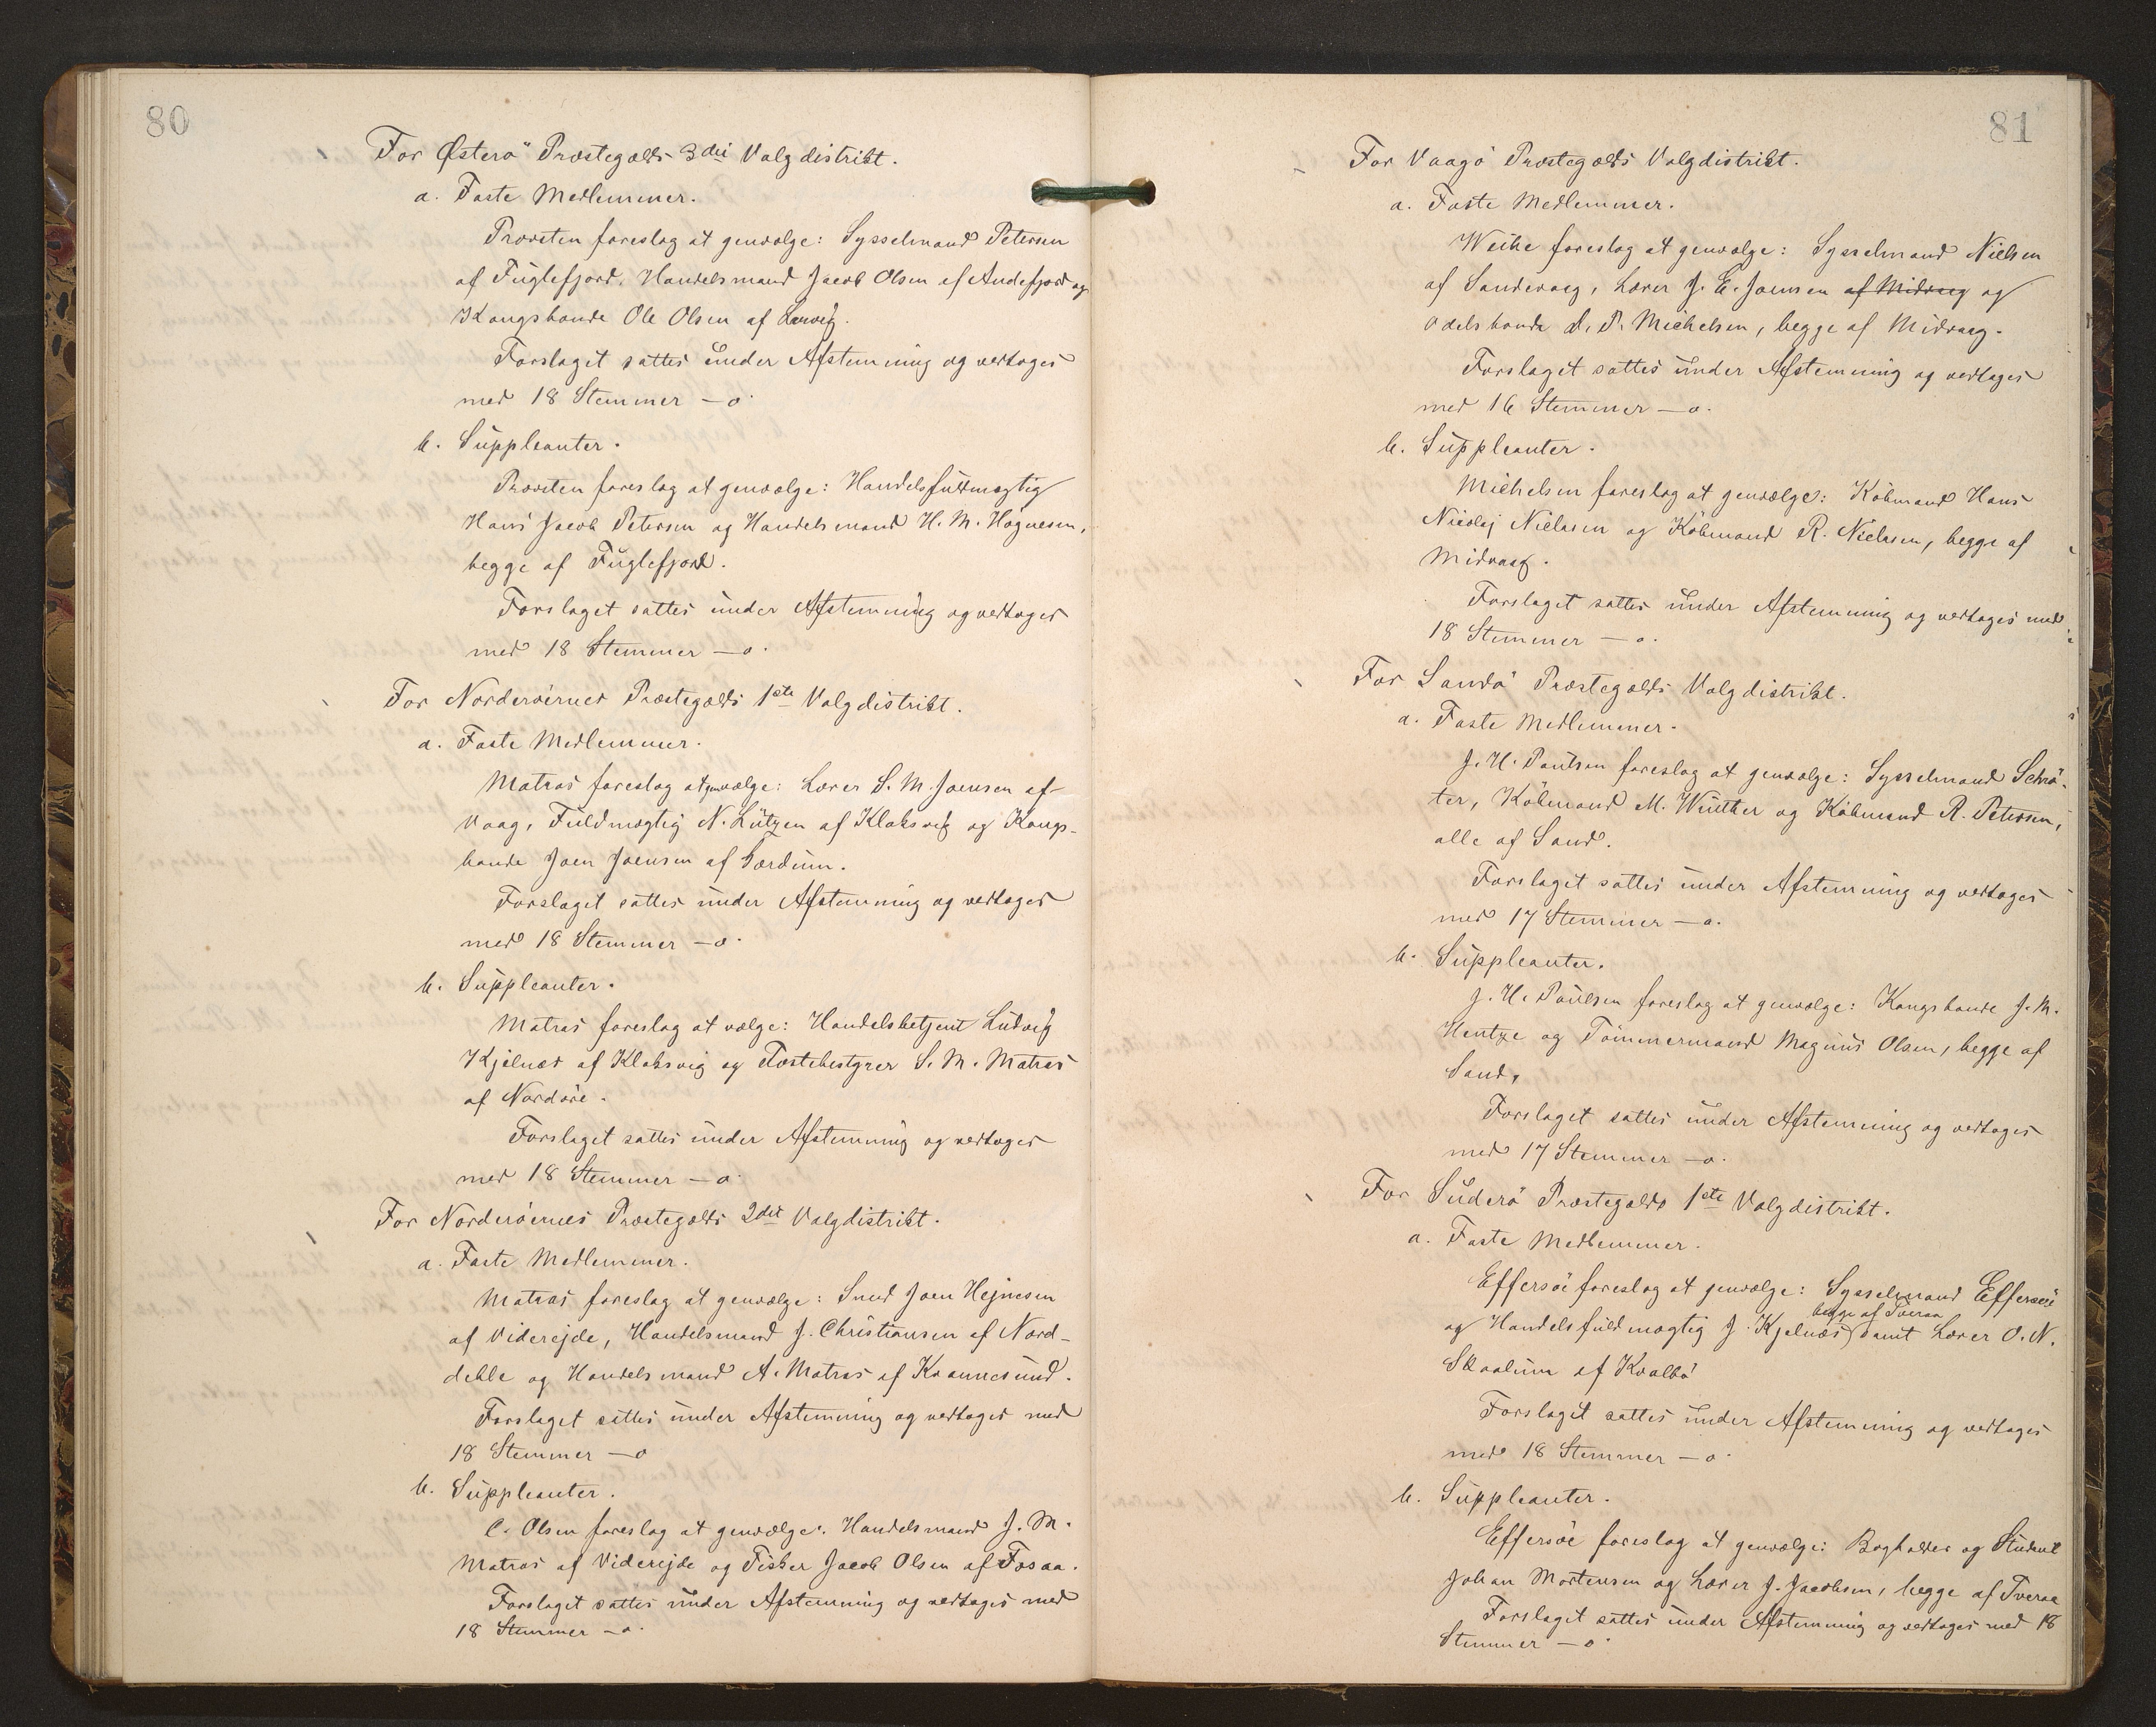 80
For Østerö Præstegælds 3die Valgdistrikt.
a. Faste Medlemmer.
Provsten foreslog at genvælge: Sysselmand Petersen
af Fuglefjord, Handelsmand Jacob Olsen af Andefjord og
Kongsbonde Ole Olsen af Lervig.
Forslaget sattes under Afstemning og vedtoges
med 18 Stemmer – o.
b. Suppleanter.
Provsten foreslog at genvælge: Handelsfuldmægtig
Hans Jacob Petersen og Handelsmand H. M. Høgnesen,
begge af Fuglefjord.
Forslaget sattes under Afstemning og vedtoges
med 18 Stemmer – o.
For Norderöernes Præstegælds 1ste Valgdistrikt.
a. Faste Medlemmer.
Matras foreslog at genvælge: Lærer S. M. Joensen af
Vaag, Fuldmægtig N. Lützen af Klaksvig og Kongs-
bonde Joen Joensen af Gærdum.
Forslaget sattes under Afstemning og vedtoges
med 18 Stemmer – o.
b. Suppleanter.
Matras foreslog at vælge: Handelsbetjent Ludvig
Kjølnæs af Klaksvig og Postbestyrer S. M. Matras
af Nordöre.
Forslaget sattes under Afstemning og vedtoges
med 18 Stemmer – o.
For Norderöernes Præstegælds 2det Valgdistrikt.
a. Faste Medlemmer.
Matras foreslog at genvælge: Smed Joen Hejnesen
af Viderejde, Handelsmand J. Christiansen af Nord-
deble og Handelsmand A. Matras af Kvannesund.
Forslaget sattes under Afstemning og vedtoges med
18 Stemmer – o
b. Suppleanter.
C. Olsen foreslog at genvælge: Handelsmand J. M.
Matras af Viderejde og Fisker Jacob Olsen af Fosaa.
Forslaget sattes under Afstemning og vedtoges med
18 Stemmer – o.
81
For Vaagö Præstegælds Valgdistrikt.
a. Faste Medlemmer.
Weihe foreslog at genvælge: Sysselmand Nielsen
af Sandevaag, Lærer J. E. Joensen af Midvaag og
Odelsbonde D. P. Michelsen, begge af Midvaag.
Forslaget sattes under Afstemning og vedtoges
med 16 Stemmer – o.
b. Suppleanter.
Michelsen foreslog at genvælge: Købmand Hans
Nicolaj Nielasen og Købmand R. Nielasen, begge af
Midvaag.
Forslaget sattes under Afstemning og vedtoges med
18 Stemmer – o.
For Sandö Præstegælds Valgdistrikt.
a. Faste Medlemmer.
J. H. Poulsen foreslog at genvælge: Sysselmand Schrö-
ter, Købmand M. Winther og Købmand R. Petersen,
alle af Sand.
Forslaget sattes under Afstemning og vedtoges
med 17 Stemmer – o.
b. Suppleanter.
J. H. Poulsen foreslog at genvælge: Kongsbonde J. M.
Hentze og Tömmermand Magnus Olsen, begge af
Sand.
Forslaget sattes under Afstemning og vedtoges
med 17 Stemmer – o.
For Suderö Præstegælds 1ste Valgdistrikt.
a. Faste Medlemmer.
Effersöe foreslog at genvælge: Sysselmand Effersöe
begge af Tveraa
og Handelsfuldmægtig J. Kjølnæs, samt Lærer O. N.
Skaalum af Kvalbö
Forslaget sattes under Afstemning og vedtoges
med 18 Stemmer – o.
b. Suppleanter.
Effersöe foreslog at genvælge: Bogholder og Student
Johan Mortensen og Lærer J. Jacobsen, begge af Tveraa
Forslaget sattes under Afstemning og vedtoges med 18
Stemmer – o.